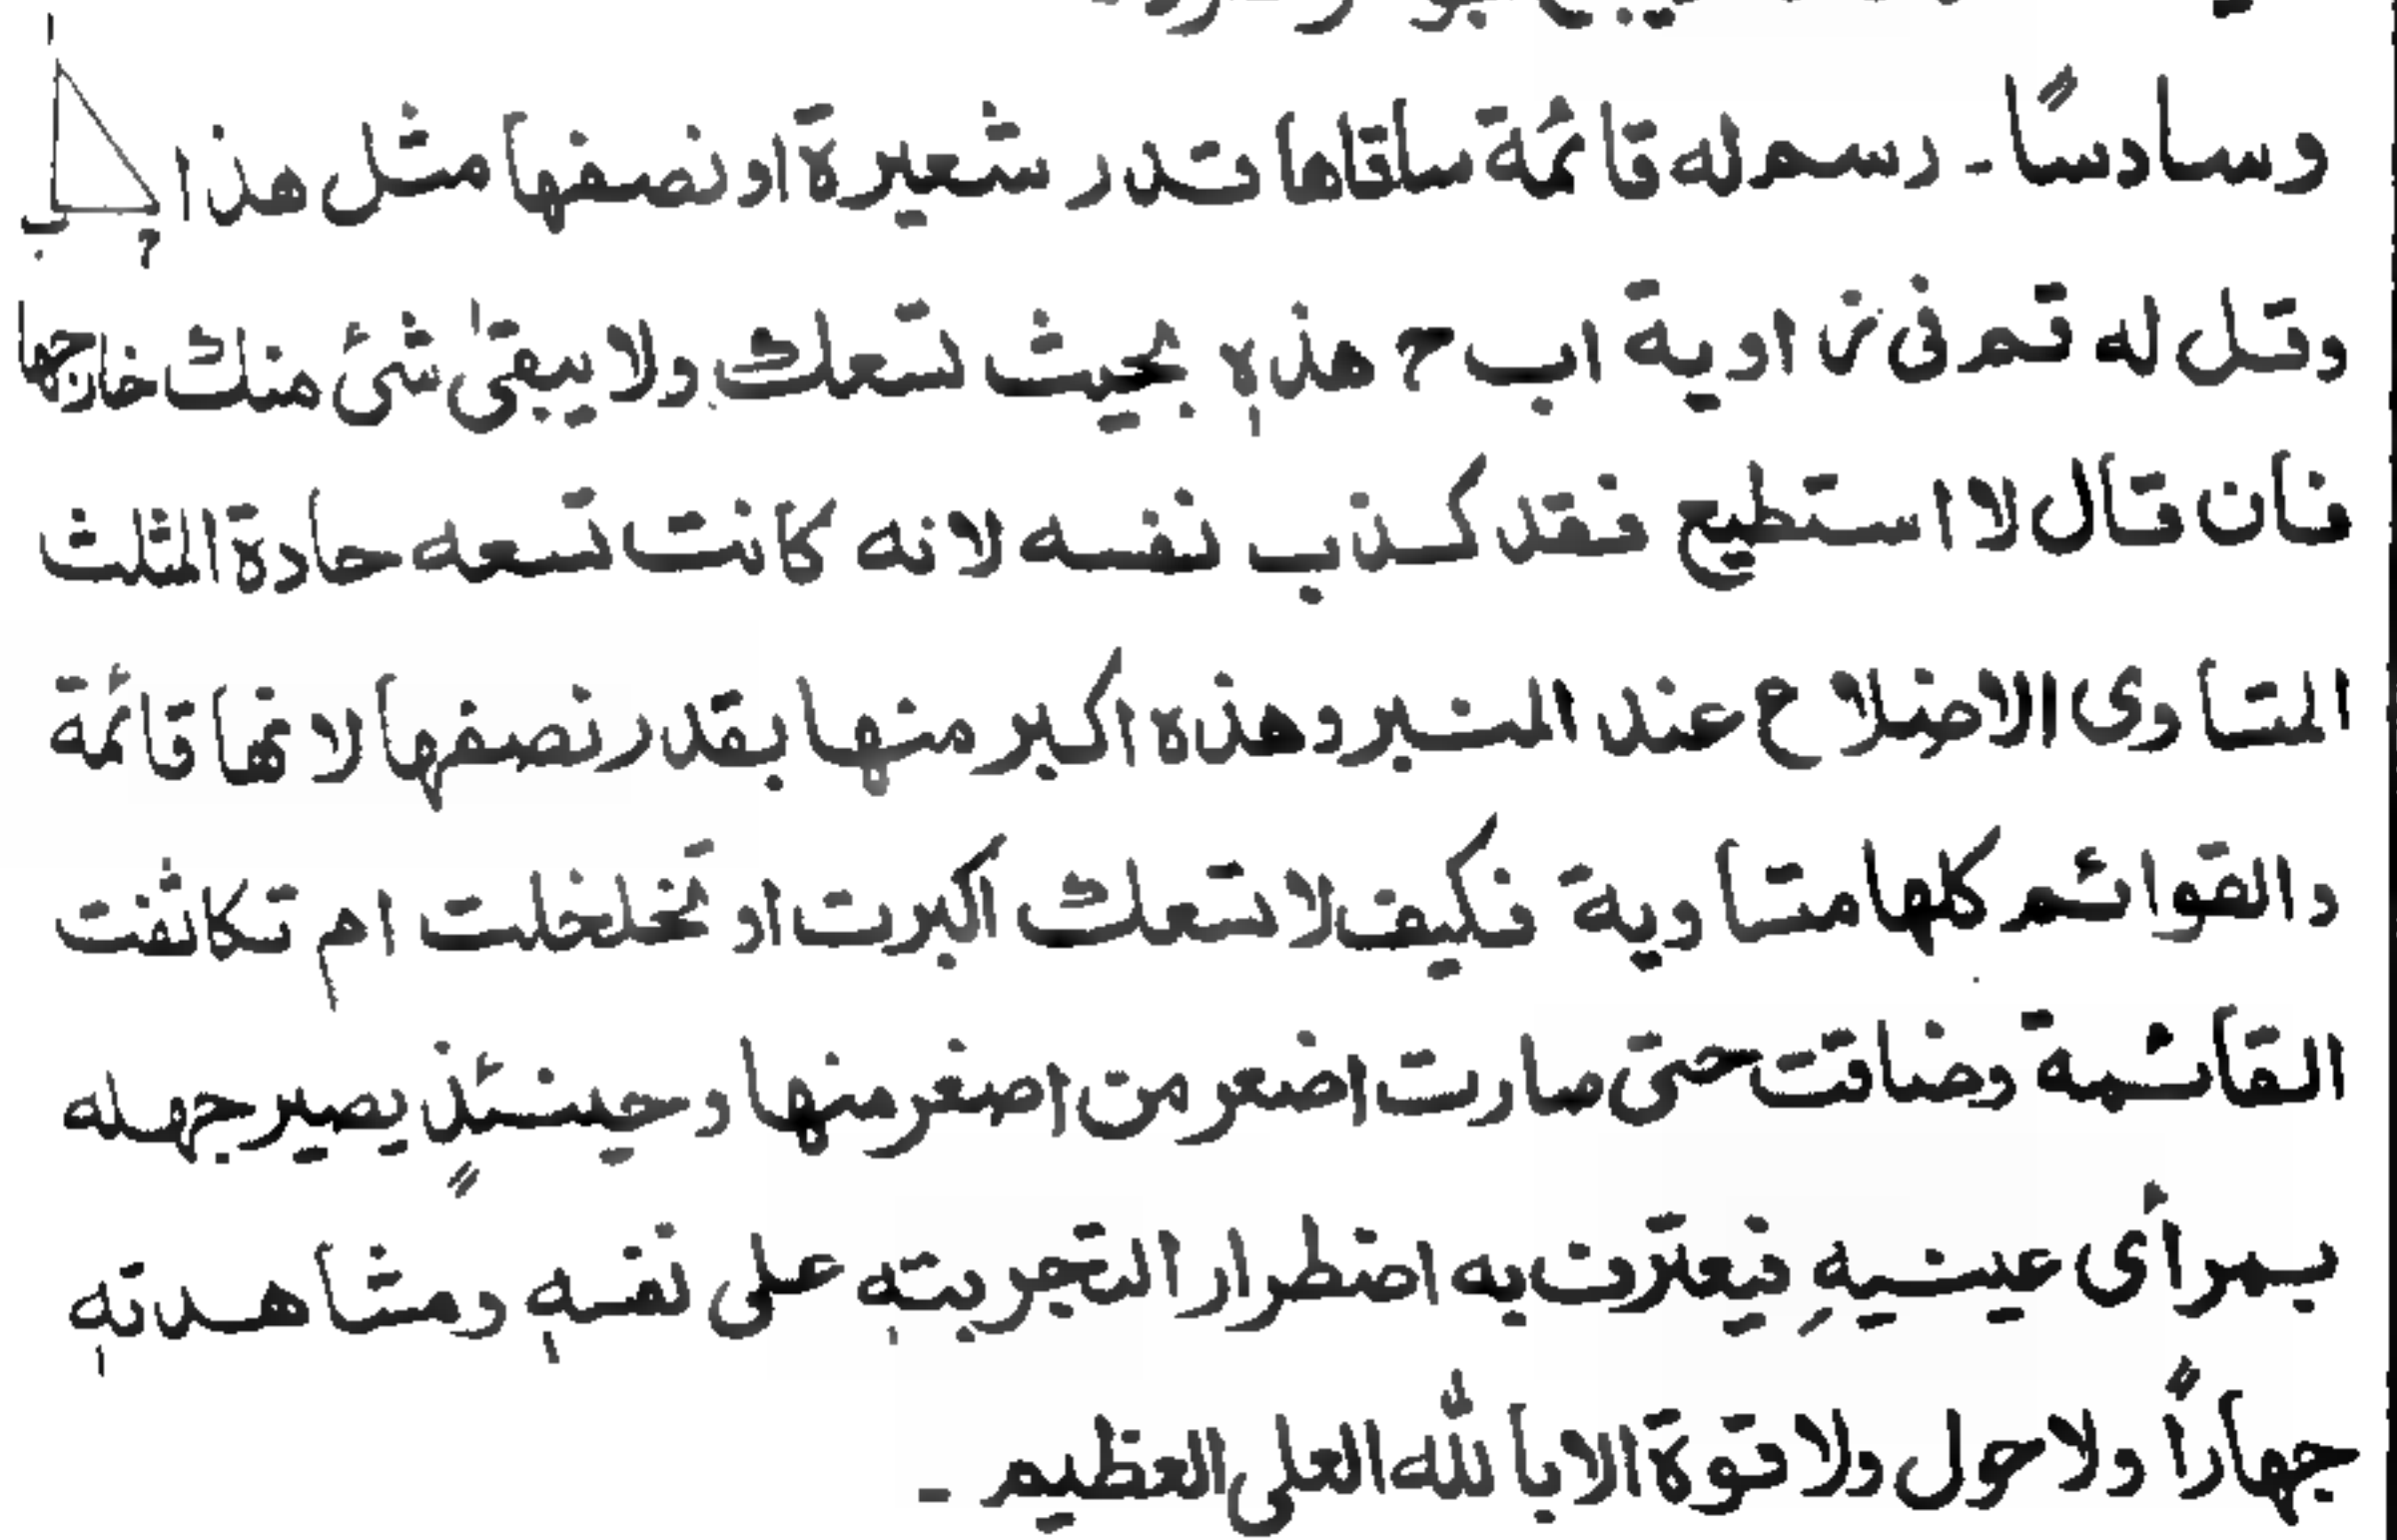 وسادسًا۔ رسم له قائمة ساقاها قدر شعيرة او نصفها مثل هذا
ا
ب ح
وقل له قم فی زاوية ا ب ح هذہٖ بحيث تسعك ولا يبقیٰ شیٔ منك خارجها
فان قال لا استطيع فقد كذب نفسه لانه كانت تسعه حادة المثلث
المتساوی الاضلاع عند المنبر وهذه اكبر منها بقدر نصفها لانها قائمة
والقوائم كلها متساوية فكيف لا تسعك اكبرت او تخلخلت ام تكاثفت
القائمة وضاقت حتی صارت اضعر من اصغر منها وحينئذٍ يصير جهله
بمرأی عينيهِ فيعترف به اضطرار التجربتهٖ علی نفسهٖ ومشاهدتهٖ
جهاراً ولا حول ولا قوة الا بالله العلی العظيم ۔